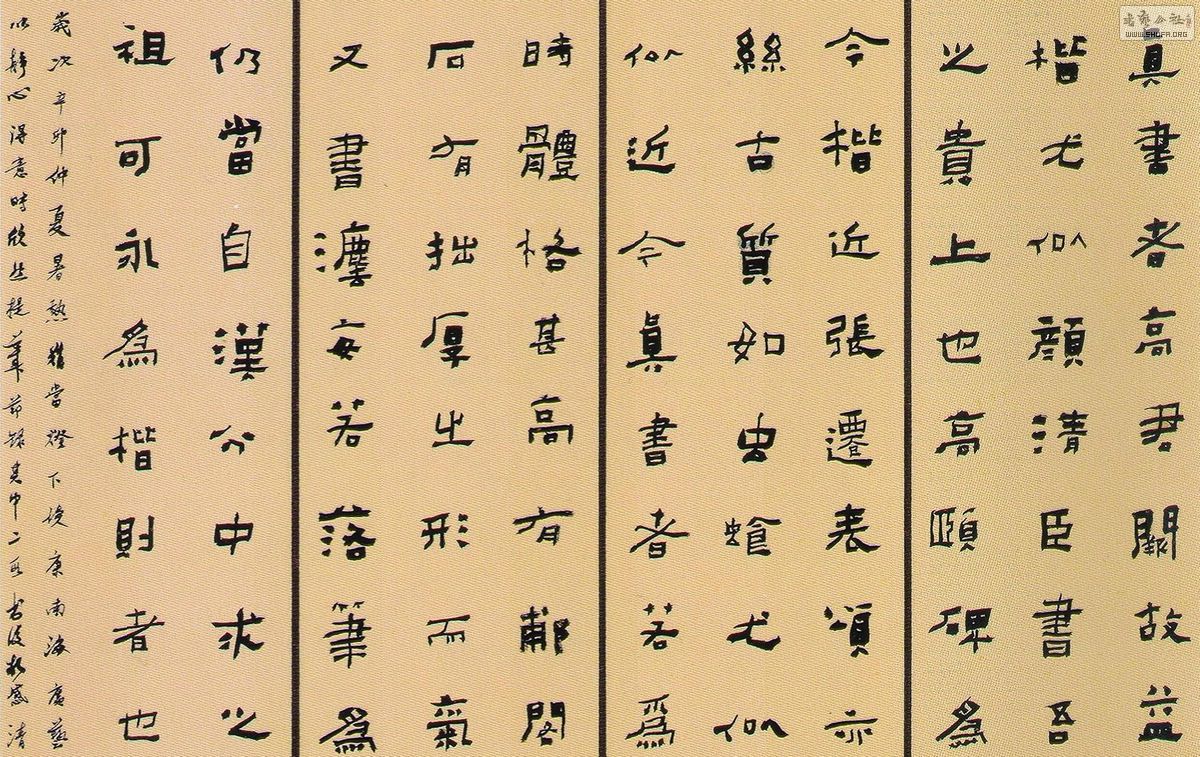 真書者高君闕故益
楷尤似顏清臣書吾
之貴上也高頤碑為
今楷近張遷表頌亦
絲古質如虫蝕尤似
似近今真書者若為
時體格甚高有郙閣
石有拙厚出形而氣
又書灋每若落筆為
仍當自漢分中求之
祖可永為楷則者也
歲次辛卯仲夏暑熱難當燈下讀康南海廣藝
以靜心得意時欣然提筆節錄其中二段書後頗感清
WWW.SHUFA.ORG